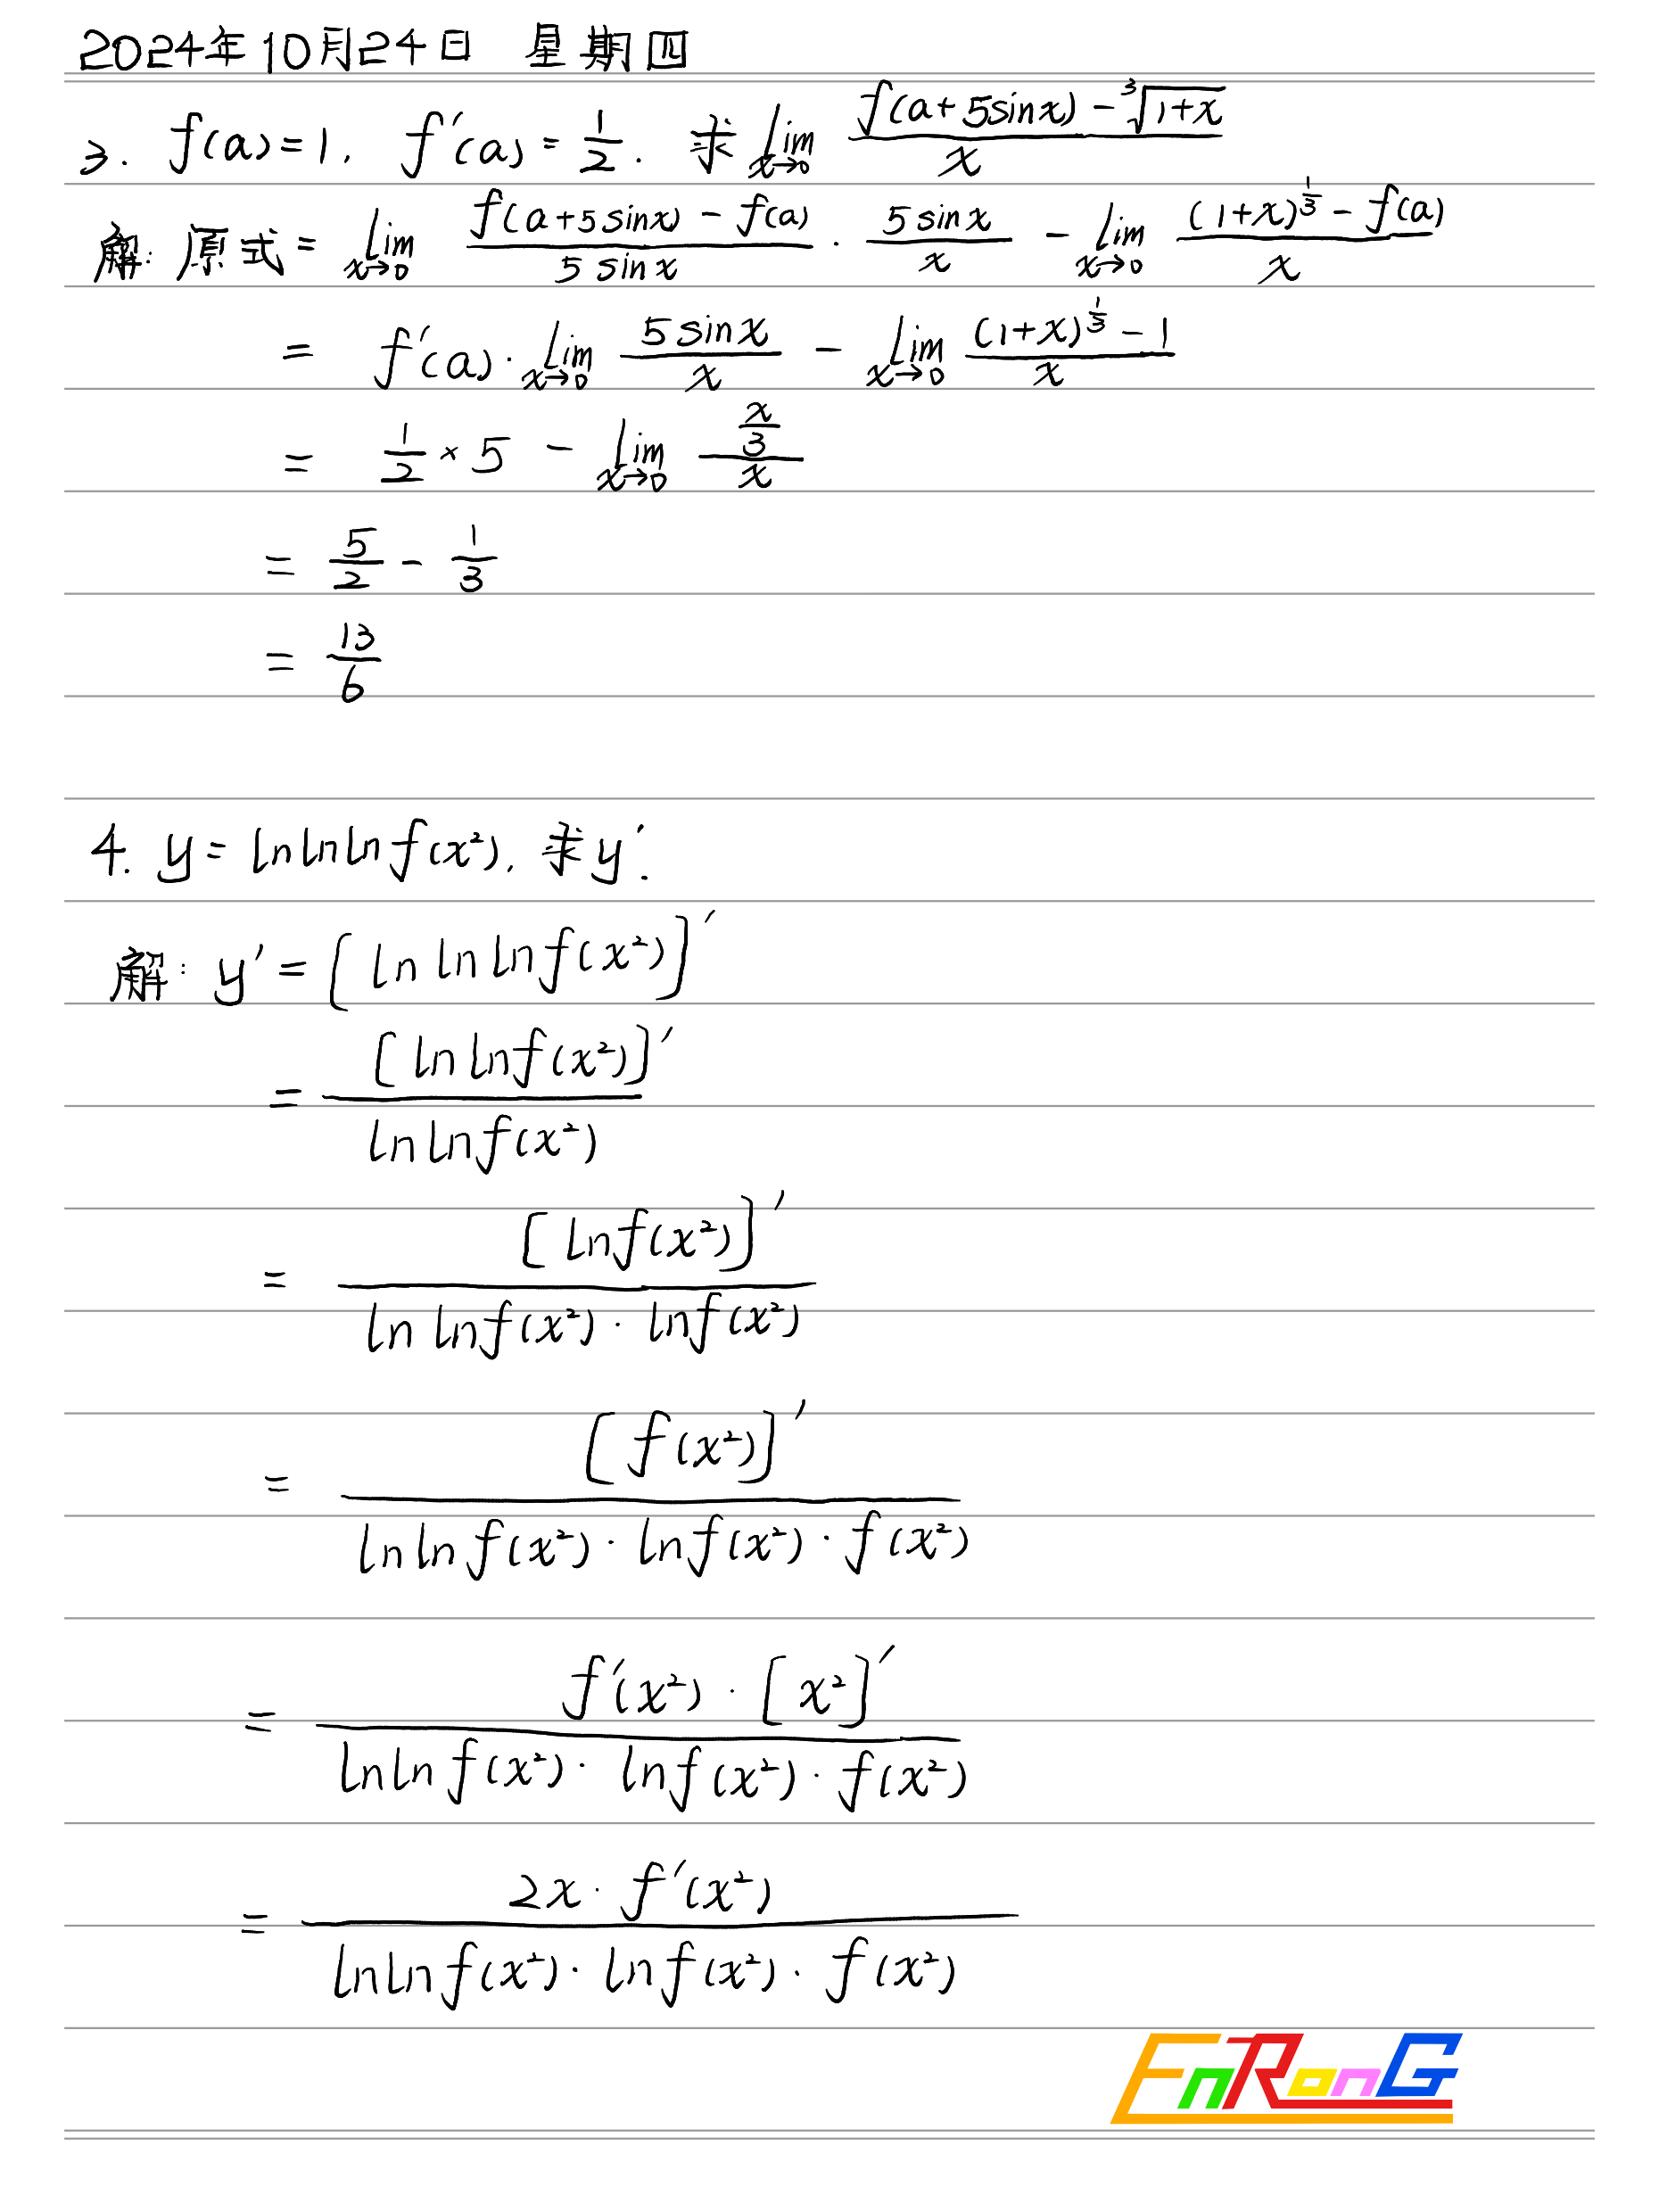 2024年10月24日 星期四
3. f(a)=1, f'(a)=1/2. 求 lim_{x→0} (f(a+5sinx) - ∛(1+x))/x
解: 原式= lim_{x→0} (f(a+5sinx) - f(a))/(5sinx) · (5sinx)/x - lim_{x→0} ((1+x)^{1/3} - f(a))/x
= f'(a) · lim_{x→0} (5sinx)/x - lim_{x→0} ((1+x)^{1/3} - 1)/x
= 1/2 × 5 - lim_{x→0} (x/3)/x
= 5/2 - 1/3
= 13/6
4. y= ln ln ln f(x²), 求y'.
解: y' = [ln ln ln f(x²)]'
= [ln ln f(x²)]' / (ln ln f(x²))
= [ln f(x²)]' / (ln ln f(x²) · ln f(x²))
= [f(x²)]' / (ln ln f(x²) · ln f(x²) · f(x²))
= f'(x²) · [x²]' / (ln ln f(x²) · ln f(x²) · f(x²))
= 2x · f'(x²) / (ln ln f(x²) · ln f(x²) · f(x²))
EnRonG